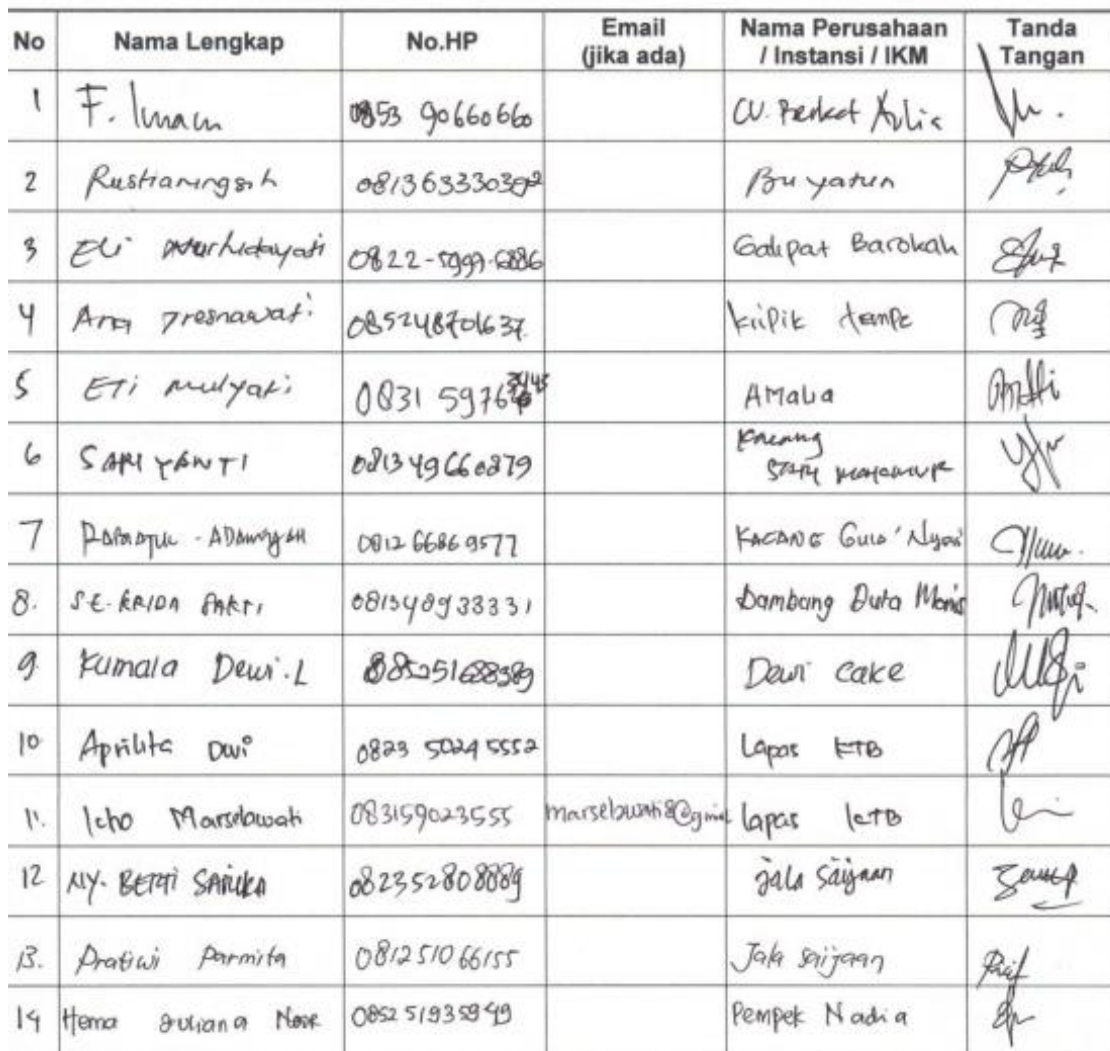 No Nama Lengkap No.HP Email (jika ada) Nama Perusahaan / Instansi / IKM Tanda Tangan
1 F. Imam 0853 90660660 CV. Berkat Aulia
2 Rustianingsih Bu yatun
3 Eli Nurhidayati 0822-5999-6886 Galipat Barokah
4 Ana Tresnawati 085248701637 kripik tempe
5 ETi mulyati 0831 5976 AMalia
6 SARIYANTI 081349660879 Kacang
7 0812 66869577 KACANG Gula'
8. 081348933331 Duta Manis
9. Kumala Dewi.L Dewi cake
10 Aprilita Dwi 0823 5024 5552 Lapas KTB
11. Icho Marsebwati 083159023555 Lapas KTB
12 NY. 082352808889 jala saijaan
13. Pratiwi Parmita 081251066155 Jala saijaan
14 Hema Juliana Noor 0852 51935949 Pempek Nadia